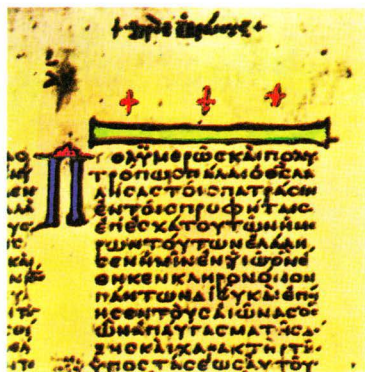 + πρὸς ἑβραίους +
Π ΟΛΥΜΕΡΩϹΚΑΙΠΟΛΥ
ΤΡΟΠΩϹΠΑΛΑΙΟΘϹΛΑ
ΛΗϹΑϹΤΟΙϹΠΑΤΡΑϹΙΝ
ΕΝΤΟΙϹΠΡΟΦΗΤΑΙϹ
ΕΠΕϹΧΑΤΟΥΤΩΝΗΜΕ
ΡΩΝΤΟΥΤΩΝΕΛΑΛΗ
ϹΕΝΗΜΙΝΕΝΥΙΩΟΝΕ
ΘΗΚΕΝΚΛΗΡΟΝΟΜΟΝ
ΠΑΝΤΩΝΔΙΟΥΚΑΙΕΠΟΙ
ΗϹΕΝΤΟΥϹΑΙΩΝΑϹΟϹ
ΩΝΑΠΑΥΓΑϹΜΑΤΗϹΔΟ
ΞΗϹΚΑΙΧΑΡΑΚΤΗΡΤΗϹ
ΥΠΟϹΤΑϹΕΩϹΑΥΤΟΥ